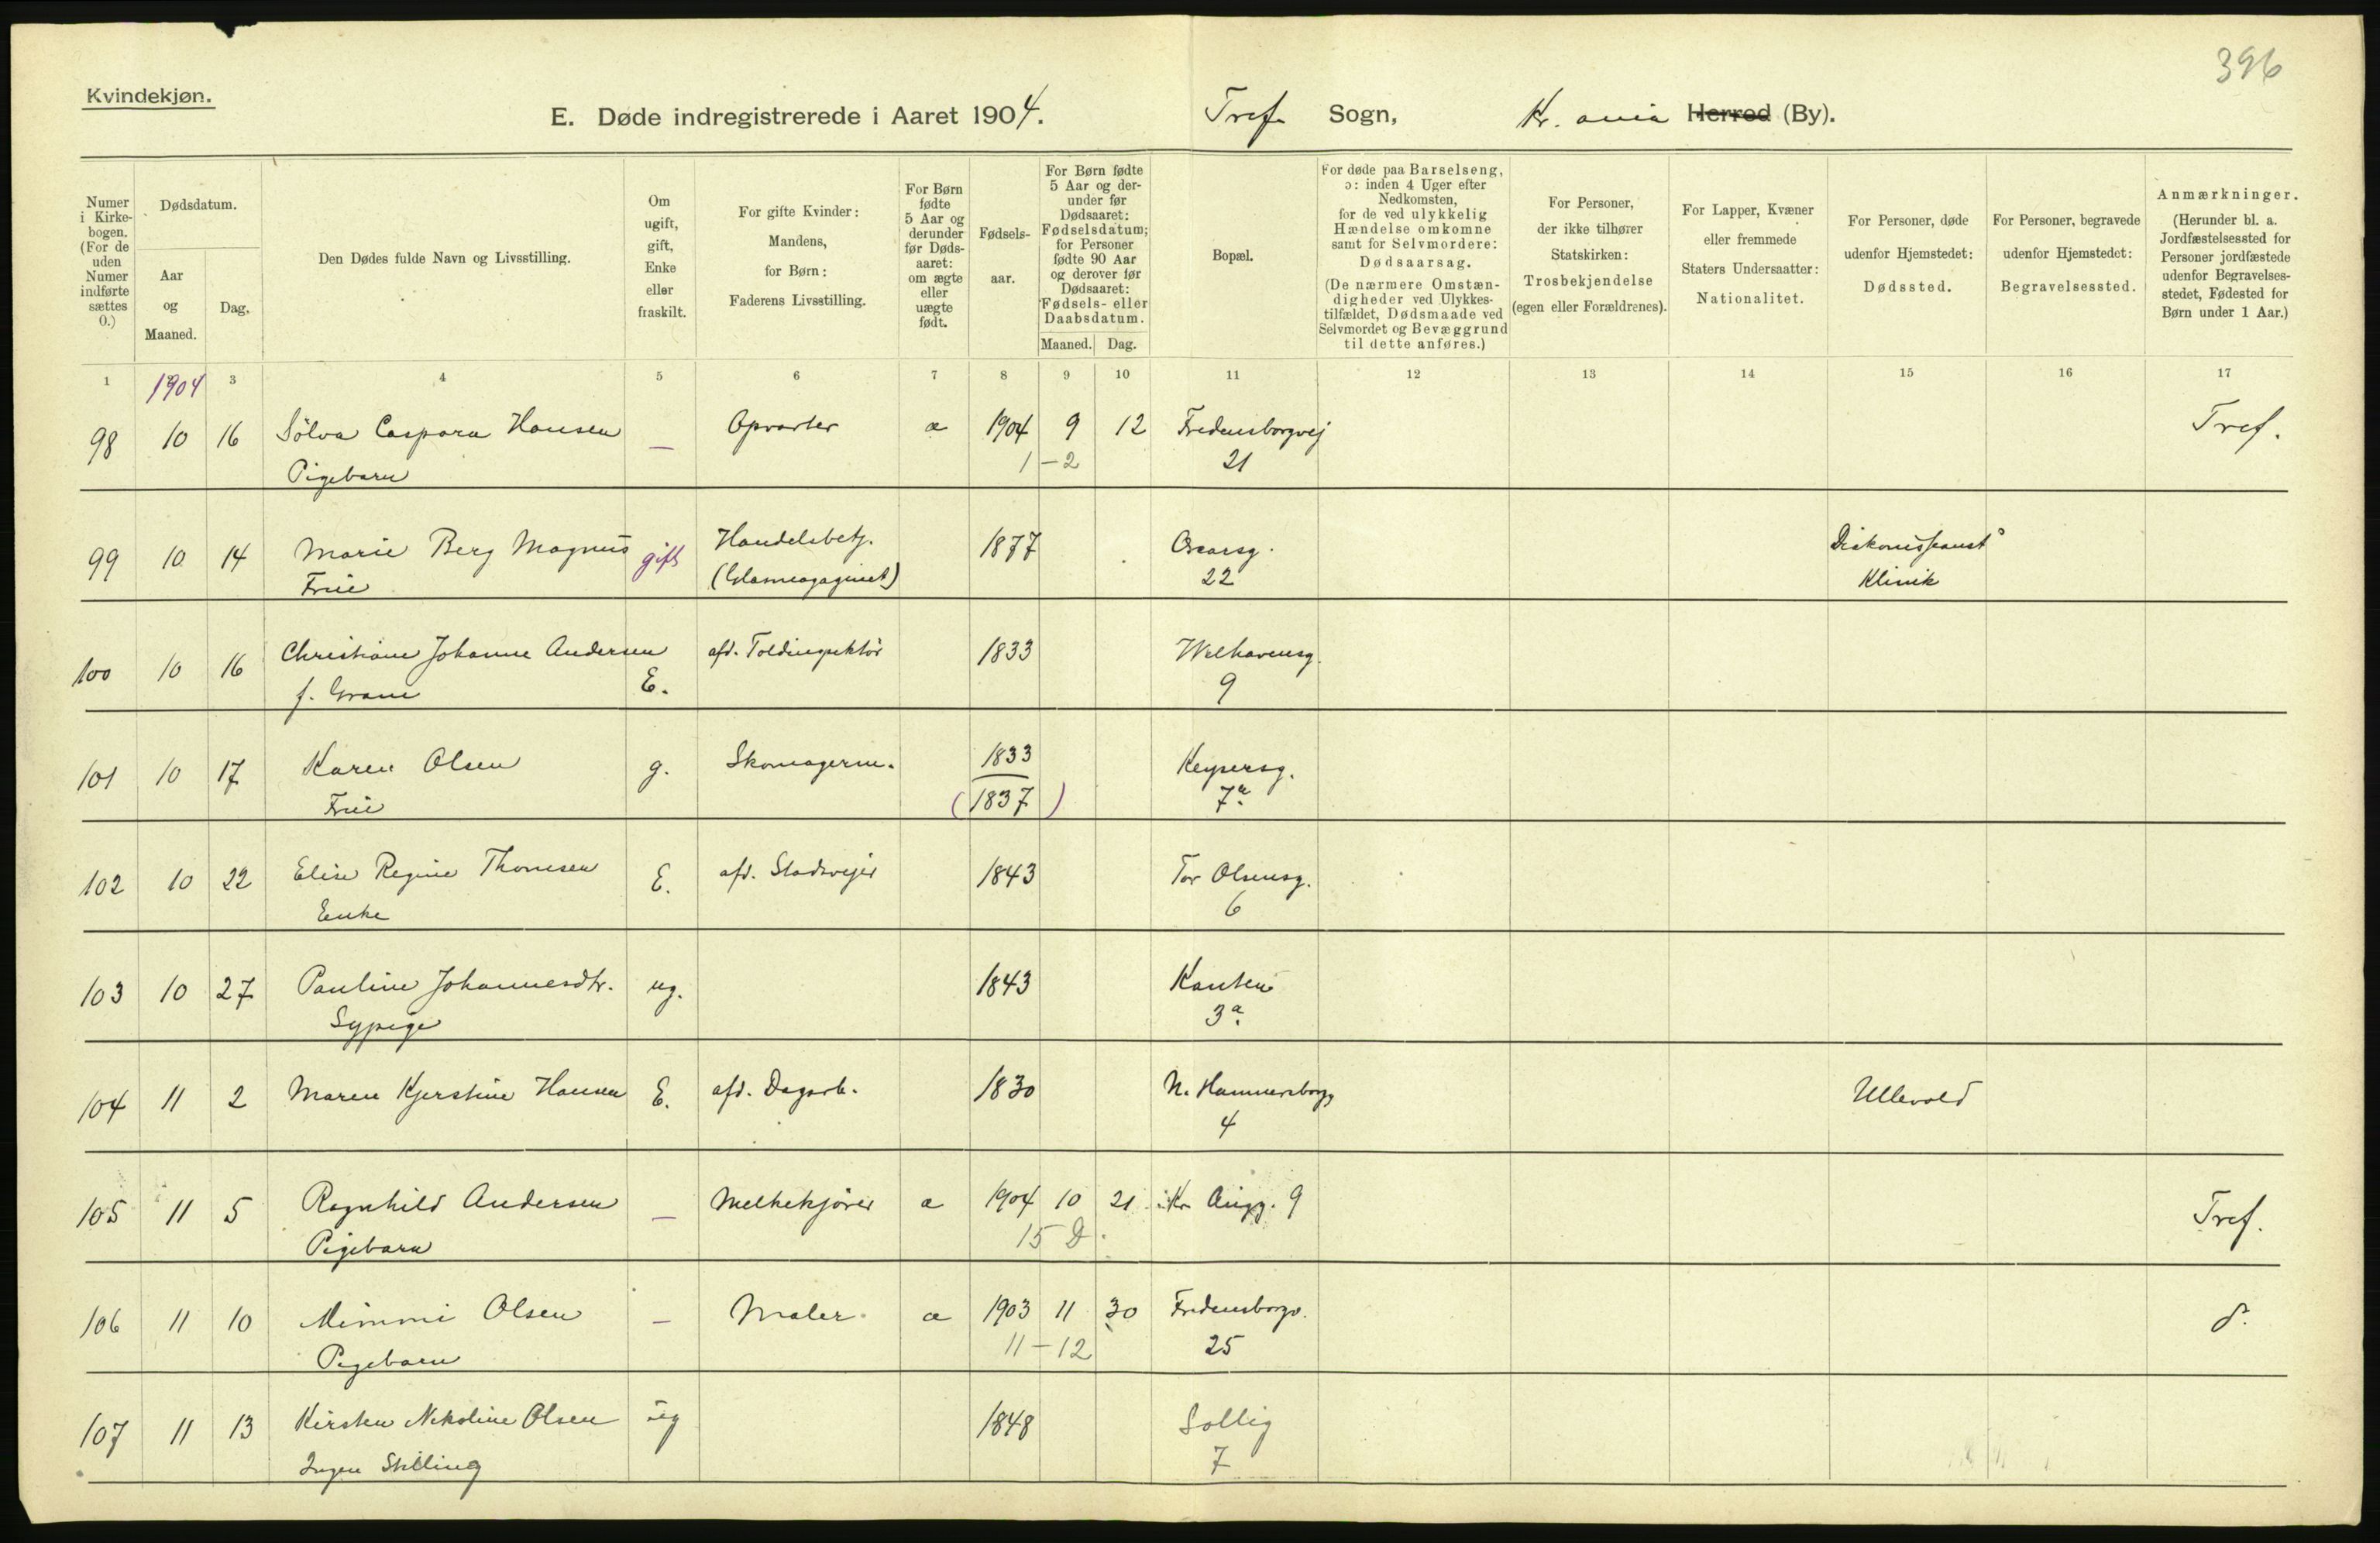 396
Kvindekjøn.
E. Døde indregistrerede i Aaret 1904. Tref. Sogn, Kr.ania Herred (By).
Numer i Kirkebogen. (For de uden Numer indførte sættes 0.)
Dødsdatum.
Aar og Maaned.
Dag.
Den Dødes fulde Navn og Livsstilling.
Om ugift, gift, Enke eller fraskilt.
For gifte Kvinder: Mandens, for Børn: Faderens Livsstilling.
For Børn fødte 5 Aar og derunder før Dødsaaret: om ægte eller uægte født.
Fødselsaar.
For Børn fødte 5 Aar og derunder før Dødsaaret: Fødselsdatum; for Personer fødte 90 Aar og derover før Dødsaaret: Fødsels- eller Daabsdatum.
Maaned. Dag.
Bopæl.
For døde paa Barselseng, ɔ: inden 4 Uger efter Nedkomsten, for de ved ulykkelig Hændelse omkomne samt for Selvmordere: Dødsaarsag. (De nærmere Omstændigheder ved Ulykkestilfældet, Dødsmaade ved Selvmordet og Bevæggrund til dette anføres.)
For Personer, der ikke tilhører Statskirken: Trosbekjendelse (egen eller Forældrenes).
For Lapper, Kvæner eller fremmede Staters Undersaatter: Nationalitet.
For Personer, døde udenfor Hjemstedet: Dødssted.
For Personer, begravede udenfor Hjemstedet: Begravelsessted.
Anmærkninger. (Herunder bl. a. Jordfæstelsessted for Personer jordfæstede udenfor Begravelsesstedet, Fødested for Børn under 1 Aar.)
1 3 4 5 6 7 8 9 10 11 12 13 14 15 16 17
1904
98 10 16 Sölva Caspara Hansen — Opvarter æ 1904 9 12 Fredensborgvej Tref.
Pigebarn 1-2 21
99 10 14 Marie Berg Magnus gift Handelsbetj. 1877 Oscarsg. Diakonissanst
Frue (Glasmagaginet) 22 Klinik
100 10 16 Christiane Johanne Andersen E. afd. Toldinspektör 1833 Welhavensg.
f. Grane 9
101 10 17 Karen Olsen g. Skomagerm. 1833 Keysersg.
Frue (1837) 7a
102 10 22 Elise Regine Thomsen E. afd. Stadsvejer 1843 Tor Olsensg.
Enke 6
103 10 27 Pauline Johannesdtr. ug. 1843 Kanten
Sypige 3a.
104 11 2 Maren Kjerstine Hansen E. afd. Dagarb. 1830 N. Hammersborgg Ullevold
4
105 11 5 Ragnhild Andersen — Melkekjörer æ 1904 10 21 Kr. Augg. 9 Tref.
Pigebarn 15 D.
106 11 10 Mimmi Olsen — Maler æ 1903 11 30 Fredensborgv. d.
Pigebarn 11-12 25
107 11 13 Kirsten Nikoline Olsen ug 1848 Sollig
Ingen Stilling 7